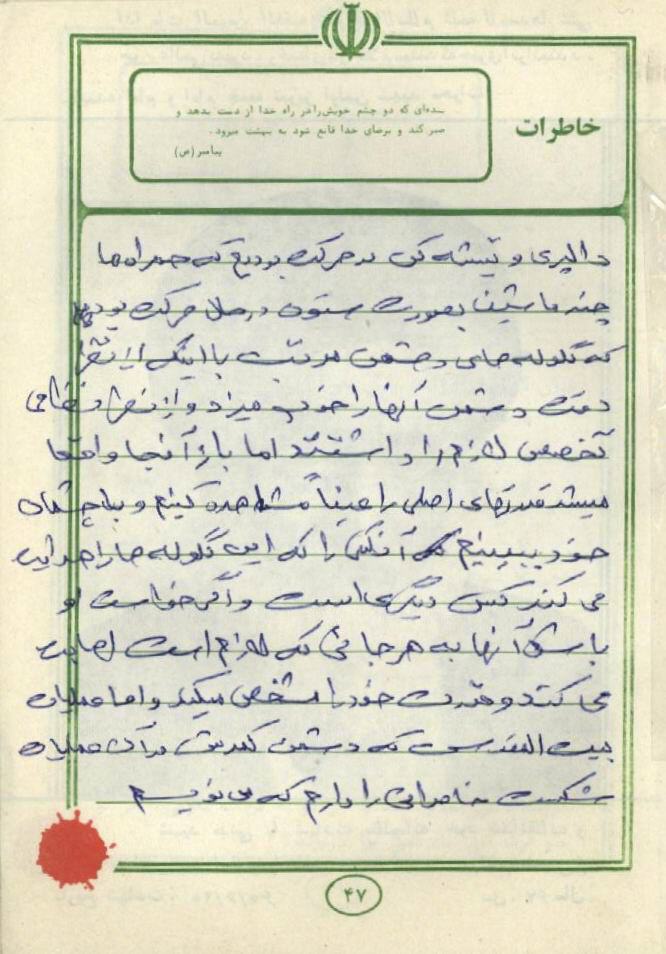 خاطرات
بنده‌ای که دو چشم خویش را در راه خدا از دست بدهد و
صبر کند و برضای خدا قانع شود به بهشت میرود.
پیامبر (ص)
دالپری و تیشه کن در حرکت بودیم که همراه ما
چند ماشین بصورت ستون در حال حرکت بودیم
که گلوله های دشمن مرتب با اینکه از نظر
دقت دشمن آنها را خوب میزد و از نظر نظامی
تخصص لازم را داشتند اما باز آنجا واقعا
میشد قدرتهای اصلی را عیناً مشاهده کنیم و با چشمان
خود ببینیم که آنکس را که این گلوله ها را هدایت
می کند کس دیگری است و اگر خواست او
باشد آنها به هر جائی که لازم است اصابت
می کنند و قدرت خود را مشخص میکند و اما عملیات
بیت المقدس که دشمن کمرش در آن عملیات
شکست خاطراتی را دارم که می نویسم
۴۷